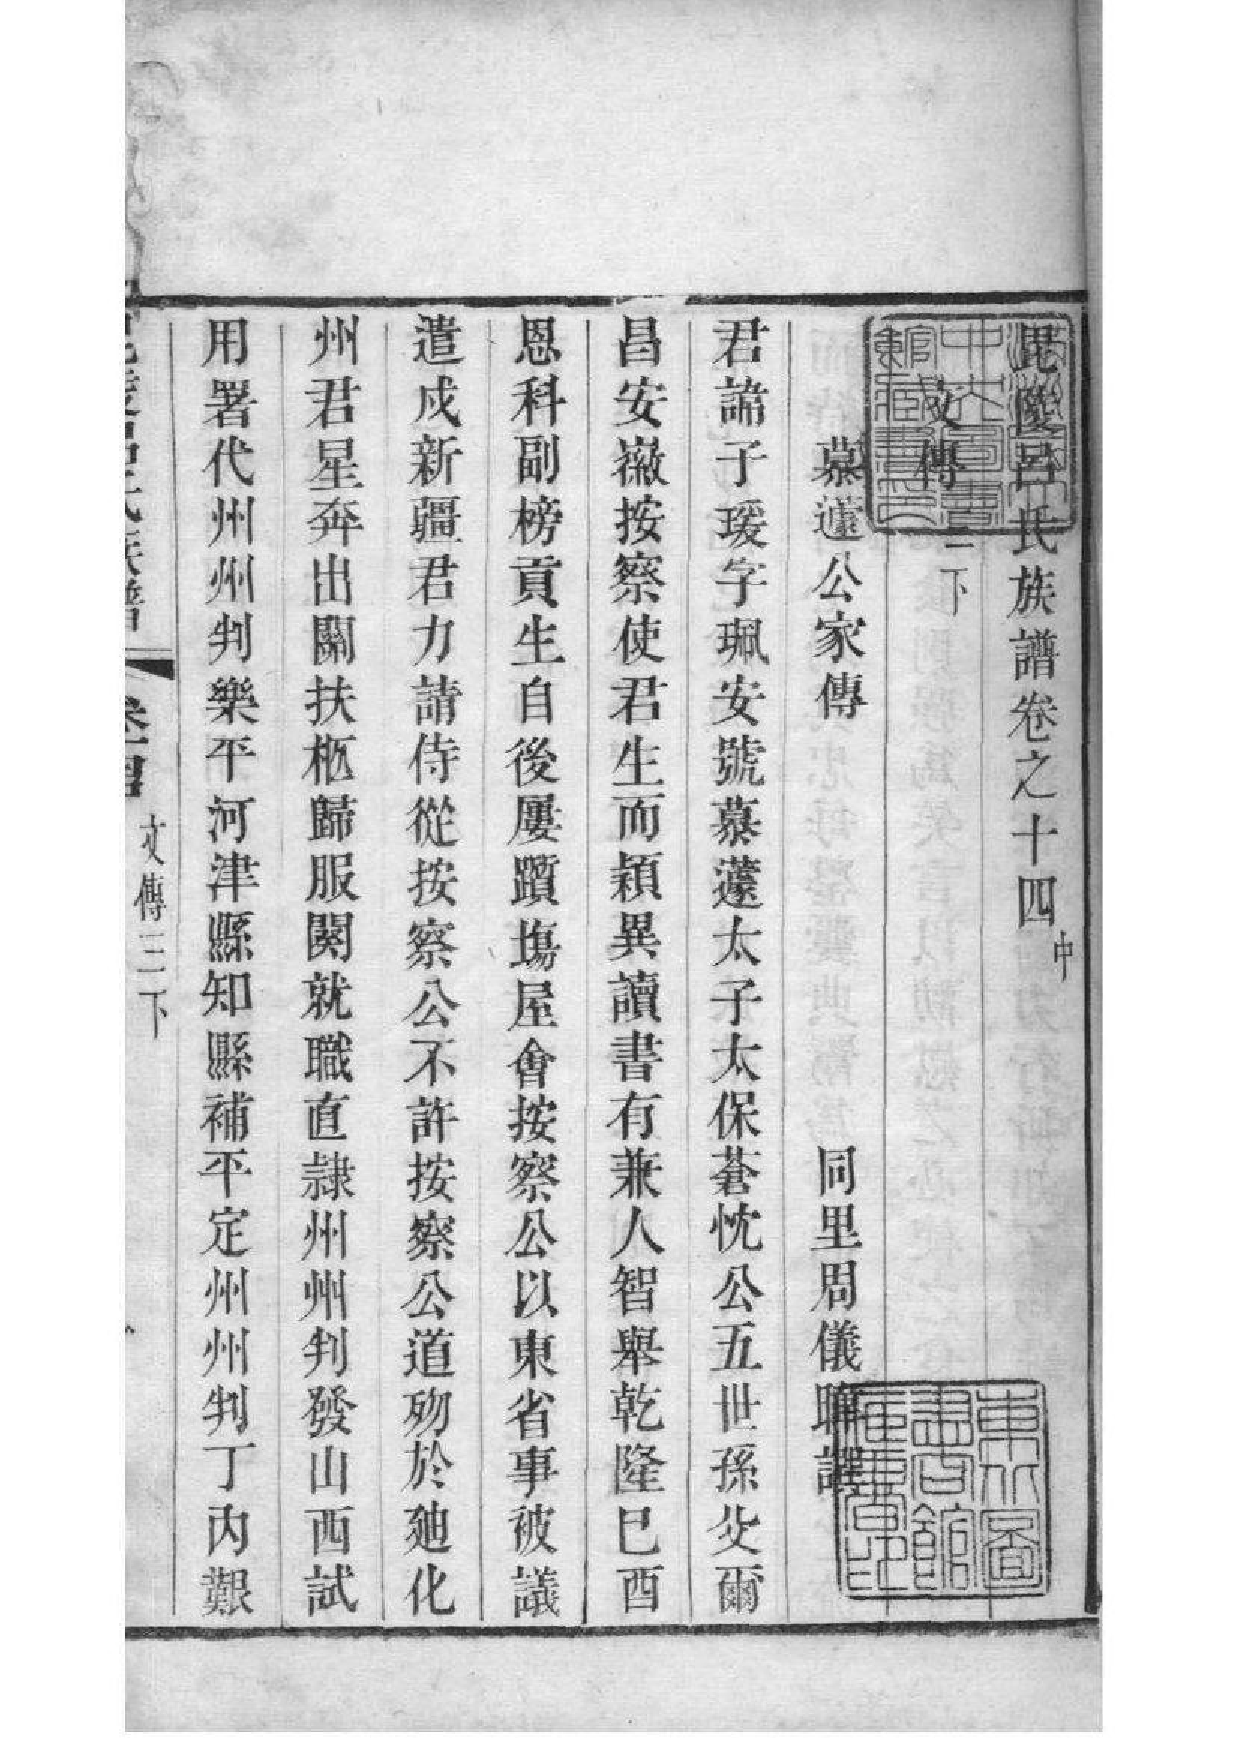 毘陵呂氏族譜卷之十四中
文傳三下
慕蘧公家傳
同里周儀暐譔
君諱子瑗字珮安號慕蘧太子太保蒼忱公五世孫父爾
昌安徽按察使君生而穎異讀書有兼人智舉乾隆己酉
恩科副榜貢生自後屢躓塲屋會按察公以東省事被議
遣戍新疆君力請侍從按察公不許按察公道歿於廸化
州君星奔出關扶柩歸服闋就職直隷州州判發山西試
用署代州州判樂平河津縣知縣補平定州州判丁內艱
毘陵呂氏族譜
卷十四
文傳三下